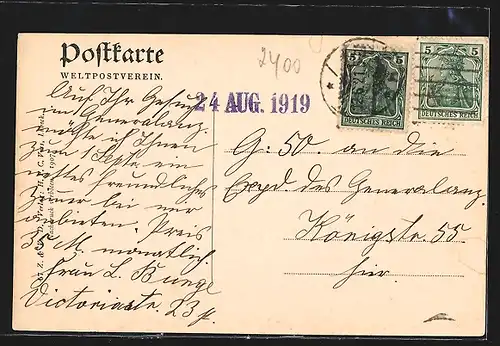 Postkarte
WELTPOSTVEREIN.
2400
24 AUG. 1919
5 5
DEUTSCHES REICH
5 5
DEUTSCHES REICH
Auf Ihr Gesuch
im Generalanz.
möchte ich Ihnen
zum 1 Sept. ein
freundliches
Zimmer bei mir
anbieten. Preis
35 M. monatlich
Frau L. Bunge
Victoriastr. 23 p.
G: 50. an die
Exped. des Generalanz.
Königstr. 55.
hier.